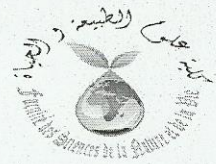 كلية علوم الطبيعة و الحياة
Faculté des Sciences de la Nature et de la Vie